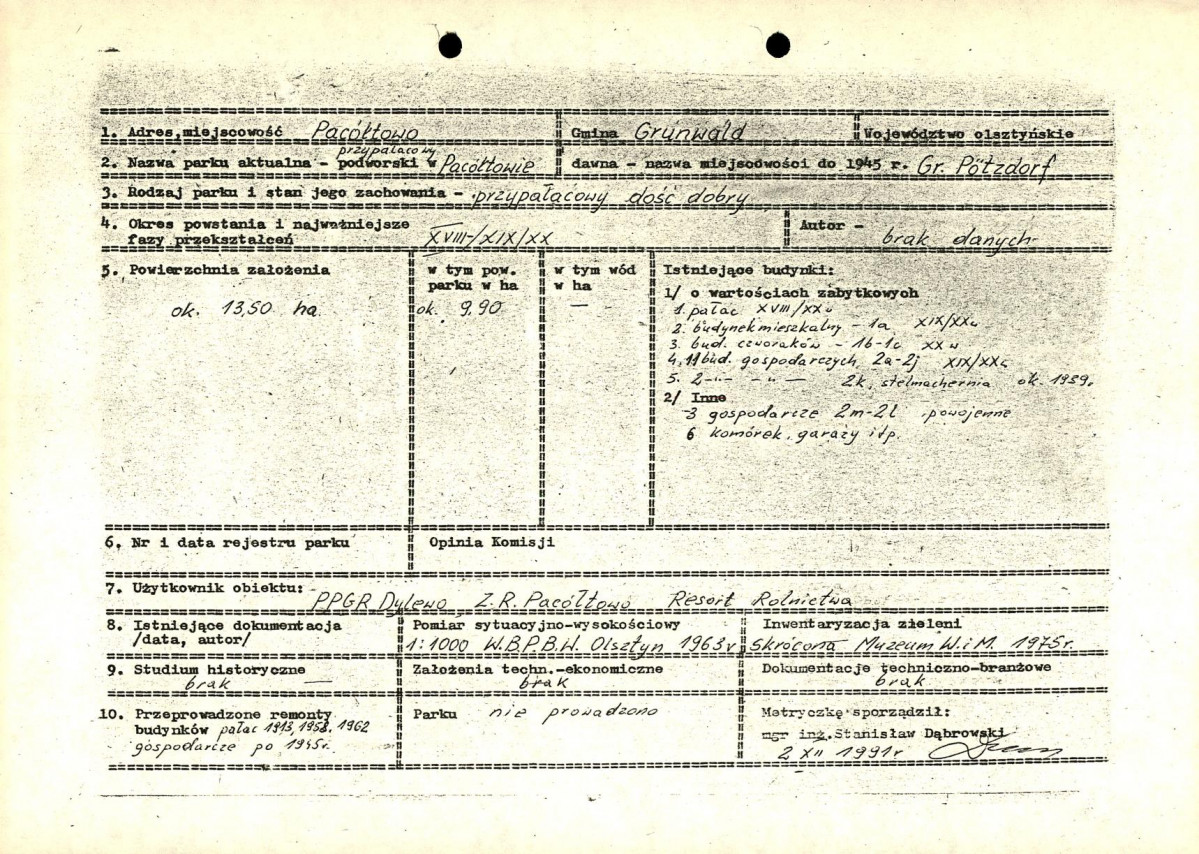 1. Adres,miejscowość Pacółtowo Gmina Grunwald Województwo olsztyńskie
przypałacowy
2. Nazwa parku aktualna - podworski w Pacółtowie dawna - nazwa miejscowości do 1945 r. Gr. Pötzdorf
3. Rodzaj parku i stan jego zachowania - przypałacowy dość dobry
4. Okres powstania i najważniejsze
fazy przekształceń XVIII-/XIX/XX Autor - brak danych
5. Powierzchnia założenia
ok. 13,50 ha
w tym pow.
parku w ha
ok. 9,90
w tym wód
w ha
—
Istniejące budynki:
1/ o wartościach zabytkowych
1. pałac XVIII/XXw
2. budynek mieszkalny - 1a XIX/XXw
3. bud. czworaków - 1b-1c XXw
4. 11 bud. gospodarczych 2a-2j XIX/XXw
5. 2 -"- -"- — 2k, stelmachernia ok. 1939r.
2/ Inne
-3 gospodarcze 2m-2l powojenne
6 komórek, garaży itp.
6. Nr i data rejestru parku Opinia Komisji
7. Użytkownik obiektu: PPGR Dylewo Z.R. Pacółtowo Resort Rolnictwa
8. Istniejące dokumentacja
/data, autor/
Pomiar sytuacyjno-wysokościowy
1:1000 W.B.P.B.W. Olsztyn 1963r
Inwentaryzacja zieleni
Skrócona Muzeum W.iM. 1975r.
9. Studium historyczne
brak —
Założenia techn.-ekonomiczne
brak
Dokumentacje techniczno-branżowe
brak
10. Przeprowadzone remonty
budynków pałac 1913, 1958, 1962
gospodarcze po 1945r.
Parku nie prowadzono
Metryczkę sporządził:
mgr inż.Stanisław Dąbrowski
2 XII 1991r